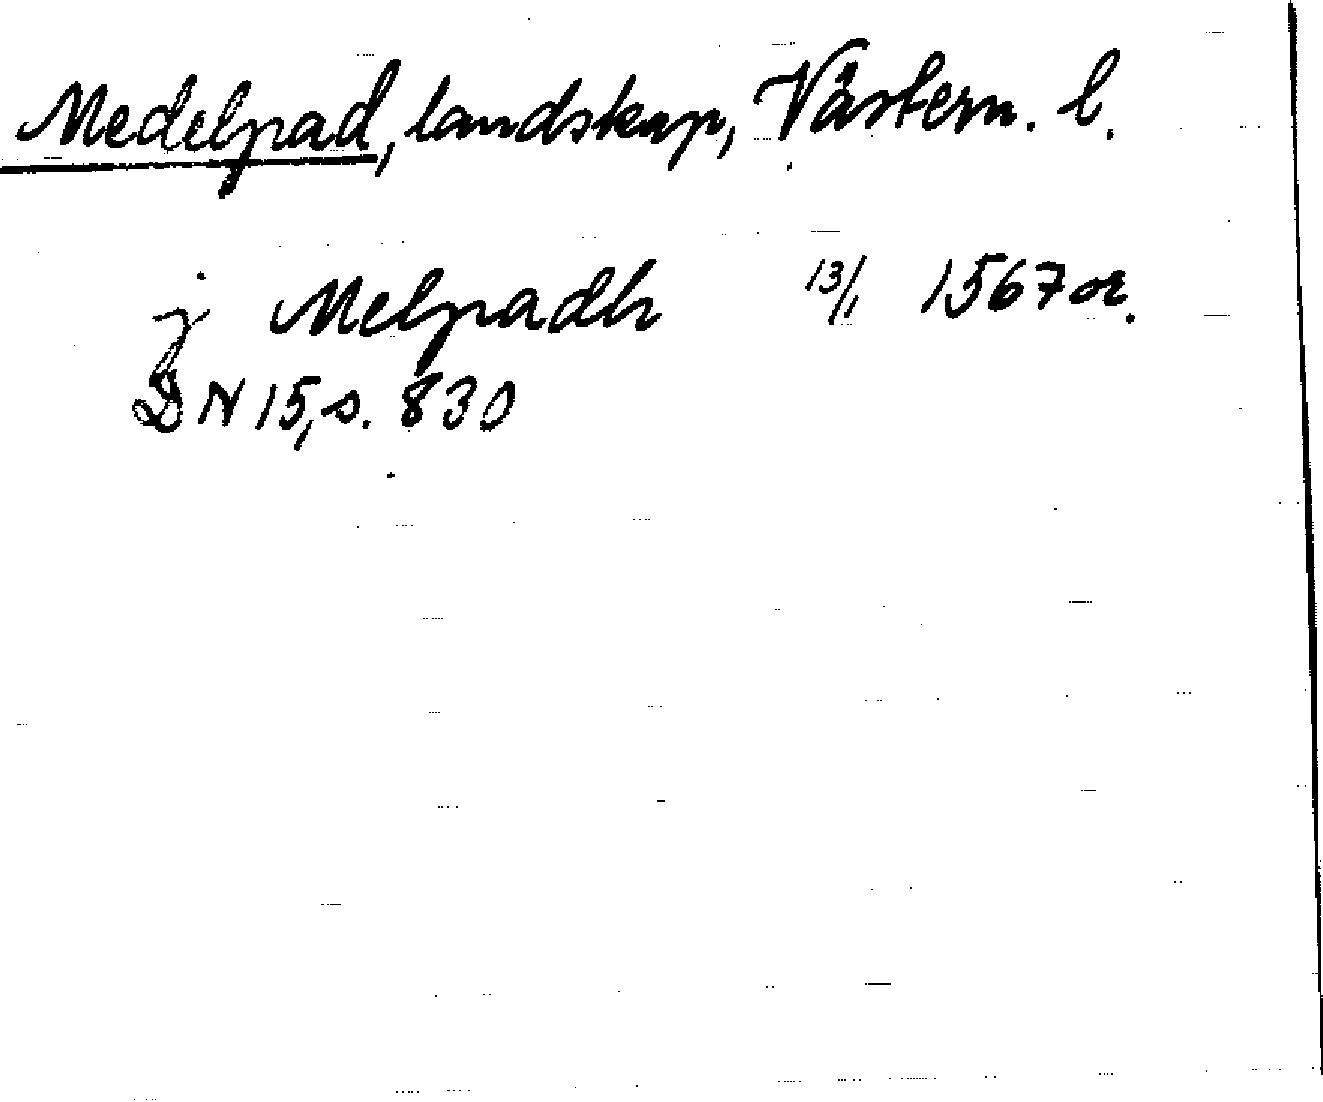 Medelpad, landskap, Västern. l.
j Melpadh 13/1 1567 or.
DN 15, s. 830